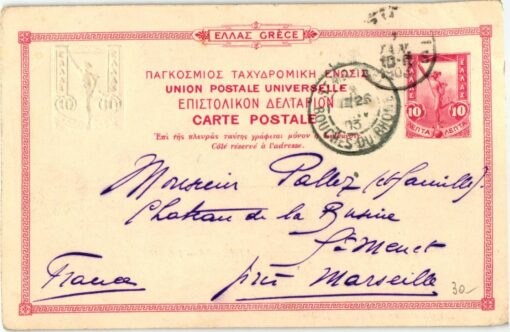 ΕΛΛΑΣ GRÈCE
ΠΑΓΚΟΣΜΙΟΣ ΤΑΧΥΔΡΟΜΙΚΗ ΕΝΩΣΙΣ
UNION POSTALE UNIVERSELLE
ΕΠΙΣΤΟΛΙΚΟΝ ΔΕΛΤΑΡΙΟΝ
CARTE POSTALE
Ἐπὶ τῆς πλευρᾶς ταύτης γράφεται μόνον ἡ
Côté réservé à l'adresse.
ΕΛΛΑΣ
ΕΛΛΑΣ
10 10
ΕΛΛΑΣ
ΕΛΛΑΣ
10 10
ΛΕΠΤΑ ΛΕΠΤΑ
BOUCHES DU RHONE
Monsieur Pallez (& famille)
Chateau de la Buzine
St Menet
France près Marseille
30